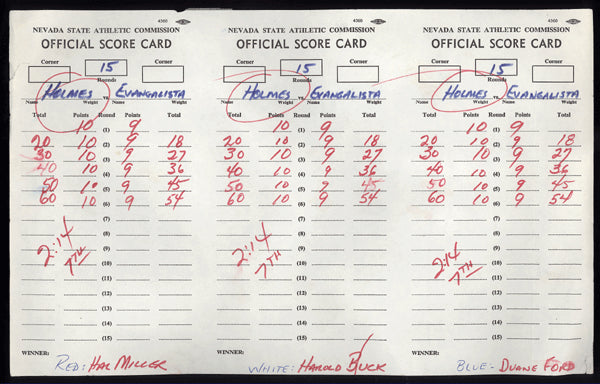 4360
NEVADA STATE ATHLETIC COMMISSION
OFFICIAL SCORE CARD
Corner Corner
15
Rounds
HOLMES vs. EVANGALISTA
Name Weight Name Weight
Total Points Round Points Total
10 (1) 9
20 10 (2) 9 18
30 10 (3) 9 27
40 10 (4) 9 36
50 10 (5) 9 45
60 10 (6) 9 54
(7)
(8)
2:14 (9)
7TH (10)
(11)
(12)
(13)
(14)
(15)
WINNER:
RED: HAL MILLER
4360
NEVADA STATE ATHLETIC COMMISSION
OFFICIAL SCORE CARD
Corner Corner
15
Rounds
HOLMES vs. EVANGALISTA
Name Weight Name Weight
Total Points Round Points Total
10 (1) 9
20 10 (2) 9 18
30 10 (3) 9 27
40 10 (4) 9 36
50 10 (5) 9 45
60 10 (6) 9 54
(7)
(8)
2:14 (9)
7TH (10)
(11)
(12)
(13)
(14)
(15)
WINNER:
WHITE: HAROLD BUCK
4360
NEVADA STATE ATHLETIC COMMISSION
OFFICIAL SCORE CARD
Corner Corner
15
Rounds
HOLMES vs. EVANGALISTA
Name Weight Name Weight
Total Points Round Points Total
10 (1) 9
20 10 (2) 9 18
30 10 (3) 9 27
40 10 (4) 9 36
50 10 (5) 9 45
60 10 (6) 9 54
(7)
(8)
2:14 (9)
7TH (10)
(11)
(12)
(13)
(14)
(15)
WINNER:
BLUE- DUANE FORD